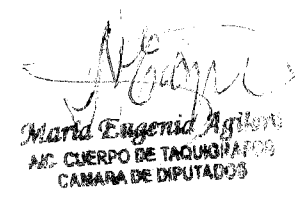 María Eugenia Agüero
A/C. CUERPO DE TAQUIGRAFOS
CAMARA DE DIPUTADOS